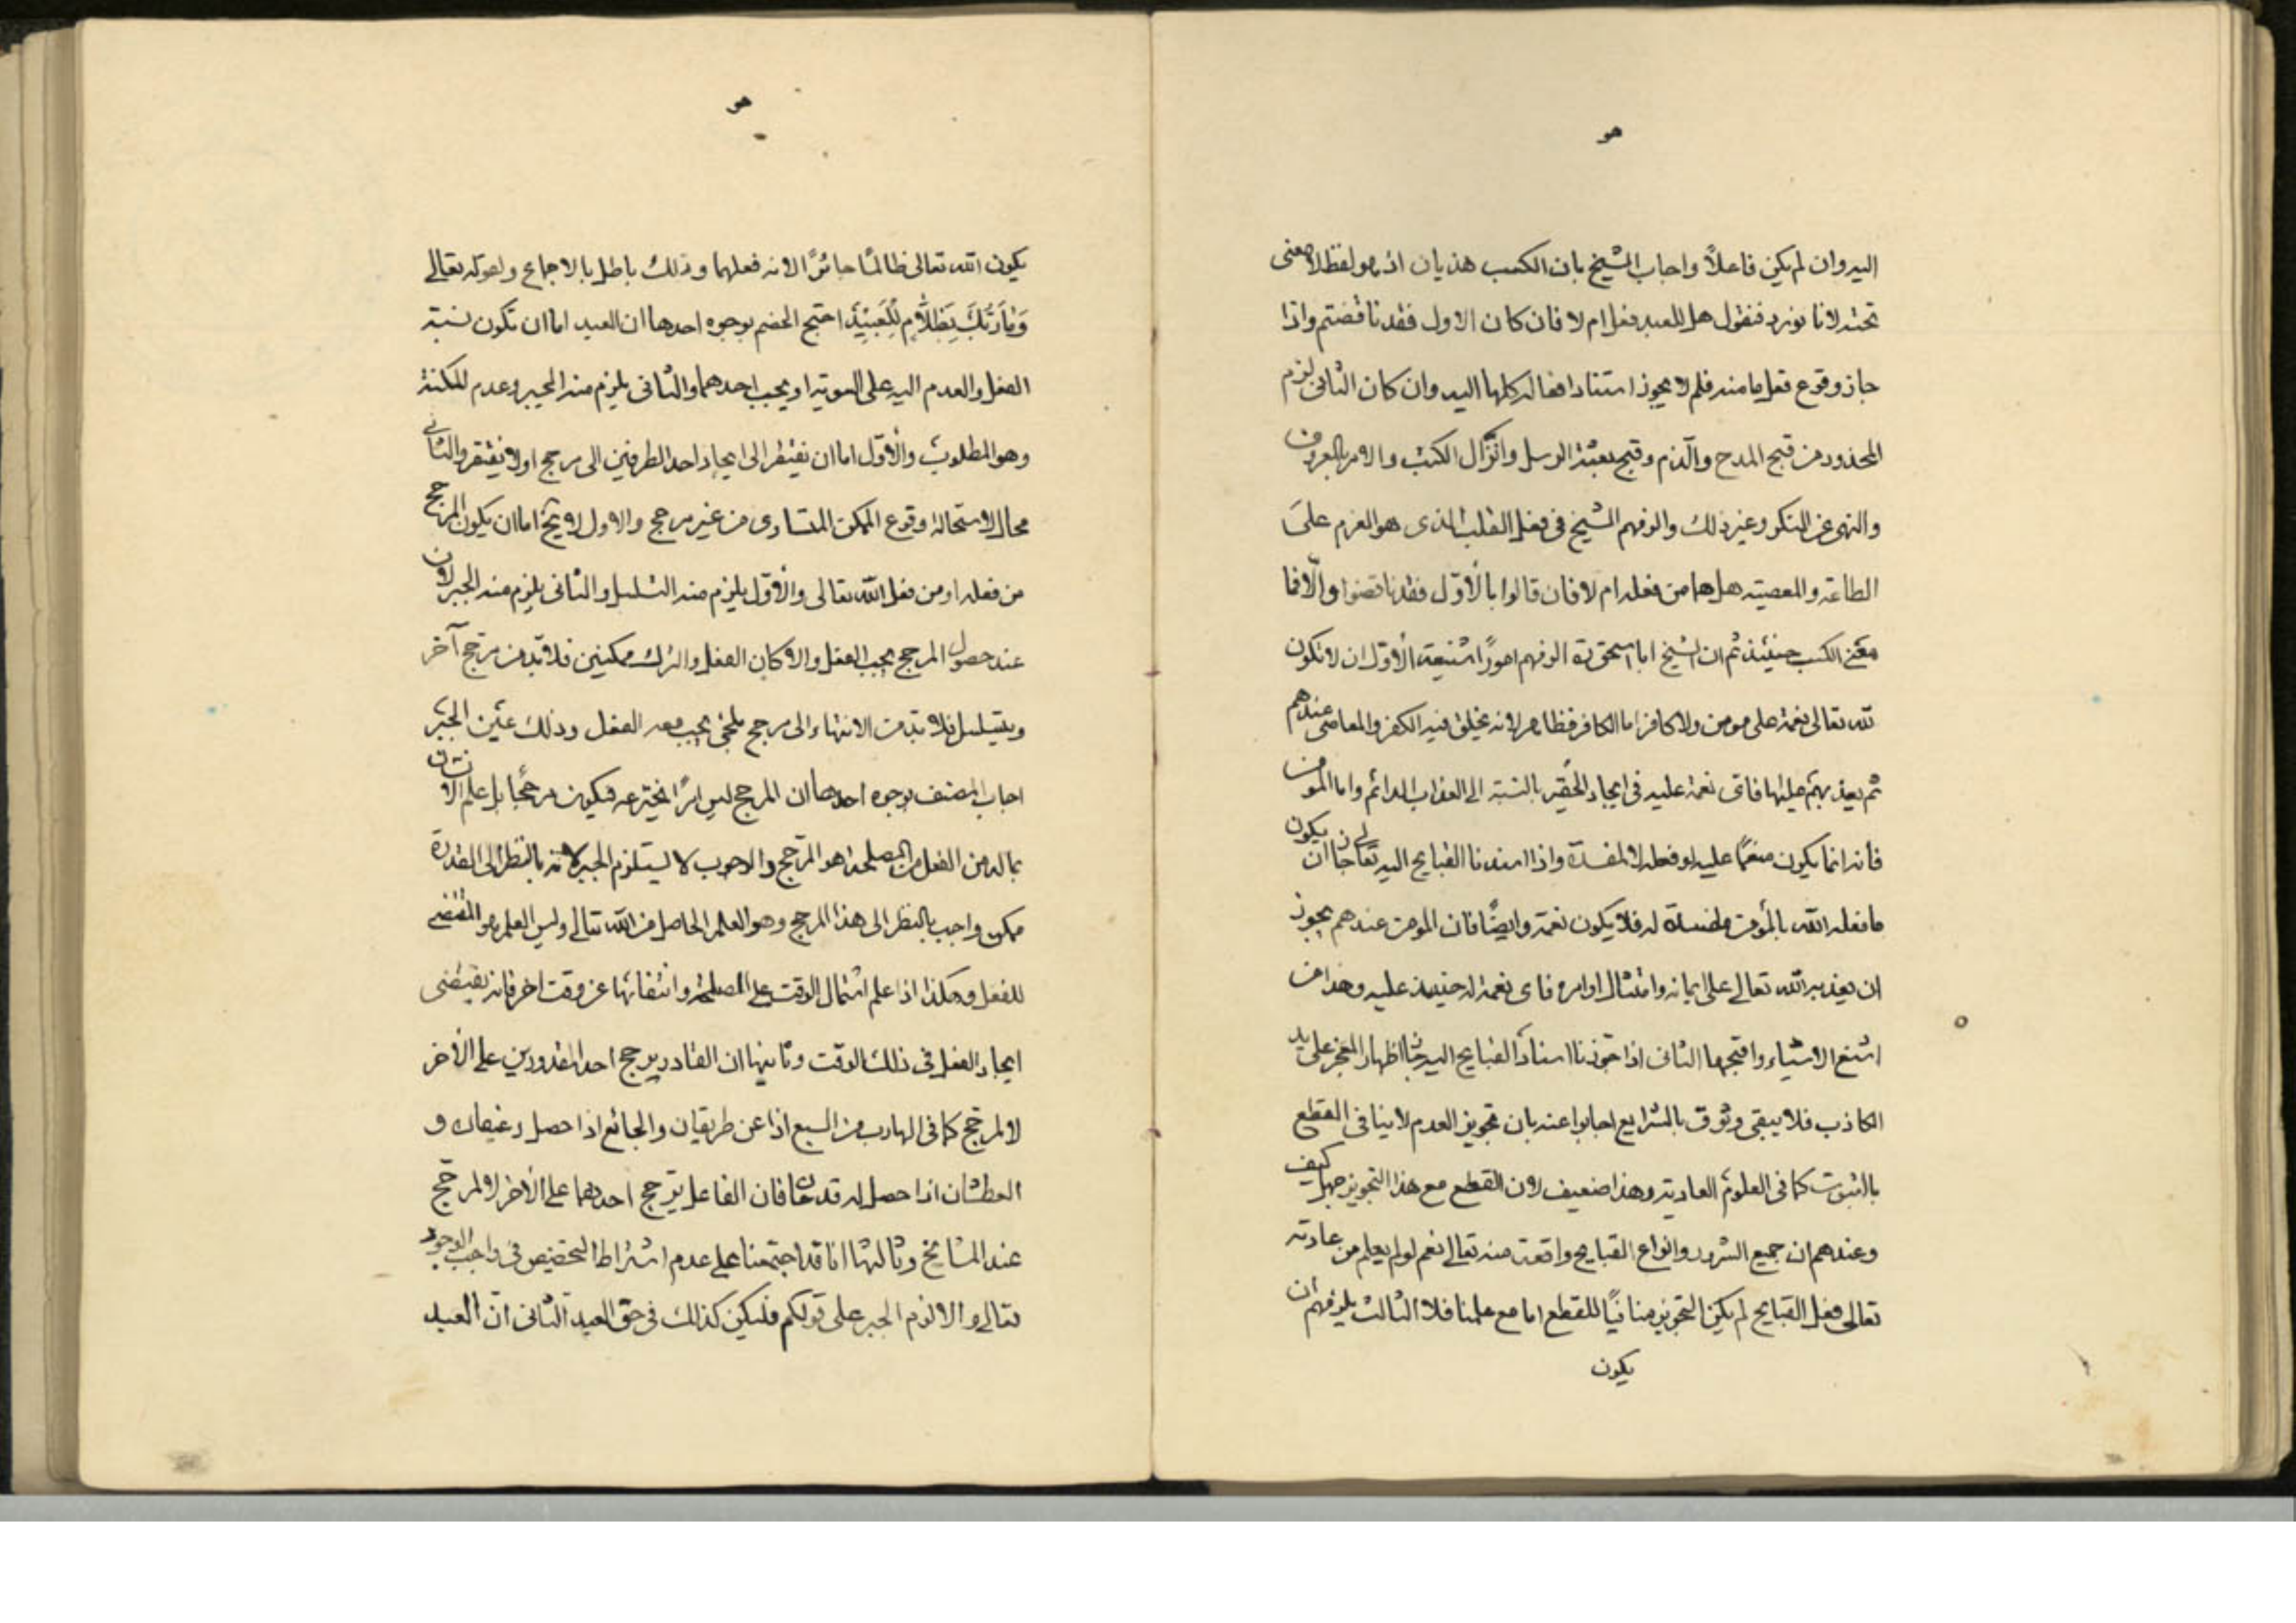 هو
اليه وان لم يكن فاعلاً واجاب الشيخ بان الكسب هذيان اذ هو لفظ لا معنى
تحته لانا نورد فنقول هل للعبد فعل ام لا فان كان الاول فقد ناقضتم واذا
جاز وقوع فعل ما منه فلم لا يجوز استناد افعاله كلها اليه وان كان الثانى لزم
المحذور من قبح المدح والذم وقبح بعثة الرسل وانزال الكتب والامر بالمعروف
والنهى عن المنكر وغير ذلك والزمهم الشيخ فى فعل القلب الذى هو العزم على
الطاعة والمعصية هل هما من فعله ام لا فان قالوا بالأوّل فقد ناقضوا والّا فما
معنى الكسب حينئذ ثم ان الشيخ ابا اسحق ره الزمهم اموراً شنيعة الأوّل ان لا يكون
لله تعالى نعمة على مومن ولا كافر اما الكافر فظاهر لانه يخلق فيه الكفر والمعاصى عندهم
ثم يعذبهم عليها فاى نعمة عليه فى ايجاد الحقير بالنسبة الى العذاب الدائم واما المومن
فانه انما يكون منعمًا عليه لو فعله لا لمفسدة واذا اسندنا القبايح اليه تعالى جاز ان يكون
ما فعله الله بالمومن مفسدة له فلا يكون نعمة وايضًا فان المومن عندهم يجوز
ان يعذبه الله تعالى على ايمانه وامتثال اوامره فاى نعمة له حينئذ عليه وهذا من
اشنع الاشياء واقبحها الثانى اذا جوّزنا اسناد القبايح اليه جاز اظهار المعجز على يد
الكاذب فلا يبقى وثوق بالشرايع اجابوا عنه بان تجويز العدم لا ينافى القطع
بالثبوت كما فى العلوم العادية وهذا ضعيف لان القطع مع هذا التجويز جهل كيف
وعندهم ان جميع الشرور وانواع القبايح واقعة منه تعالى نعم لو لم يعلم من عادته
تعالى فعل القبايح لم يكن التجويز منافيًا للقطع اما مع علمنا فلا الثالث يلزمهم ان
يكون
هو
يكون الله تعالى ظالمًا جائرًا لانه فعلهما وذلك باطل بالاجماع ولقوله تعالى
وَمَا رَبُّكَ بِظَلَّامٍ لِلْعَبِيْدِ احتج الخصم بوجوه احدها ان العبد اما ان تكون نسبة
الفعل والعدم اليه على السوية او يجب احدهما والثانى يلزم منه الجبر وعدم المكنة
وهو المطلوب والأوّل اما ان يفتقر الى ايجاد احد الطرفين الى مرجح اولا يفتقر والثانى
محال لاستحالة وقوع الممكن المتساوى من غير مرجح والاول لا يخ اما ان يكون المرجح
من فعله او من فعل الله تعالى والأوّل يلزم منه التسلسل والثانى يلزم منه الجبر لان
عند حصول المرجح يجب الفعل والا كان الفعل والترك ممكنين فلا بدّ من مرجح آخر
ويتسلسل فلا بد من الانتهاء الى مرجح ملجئ يجب معه الفعل وذلك عين الجبر
اجاب المصنف بوجوه احدها ان المرجح ليس امرًا يخترعه فيكون مرجحًا بل علم الانسان
بما له من الفعل من المصلحة هو المرجح والوجوب لا يستلزم الجبر لانه بالنظر الى القدرة
ممكن واجب بالنظر الى هذا المرجح وهو العلم الحاصل من الله تعالى وليس العلم هو المقتضى
للفعل وهكذا اذا علم اشتمال الوقت على المصلحة وانتفائها عن وقت اخر فانه يقتضى
ايجاد الفعل فى ذلك الوقت وثانيها ان القادر يرجح احد المقدورين على الأخر
لا لمرجح كما فى الهارب من السبع اذا عن طريقان والجائع اذا حصل رغيفان و
العطشان اذا حصل له قدحان فان الفاعل يرجح احدهما على الأخر لا لمرجح
عند المشايخ وثالثها انا قد اجتمعنا على عدم اشتراط التخصيص فى واجب الوجود
تعالى والا لزم الجبر على قولكم فليكن كذلك فى حق العبد الثانى ان العبد